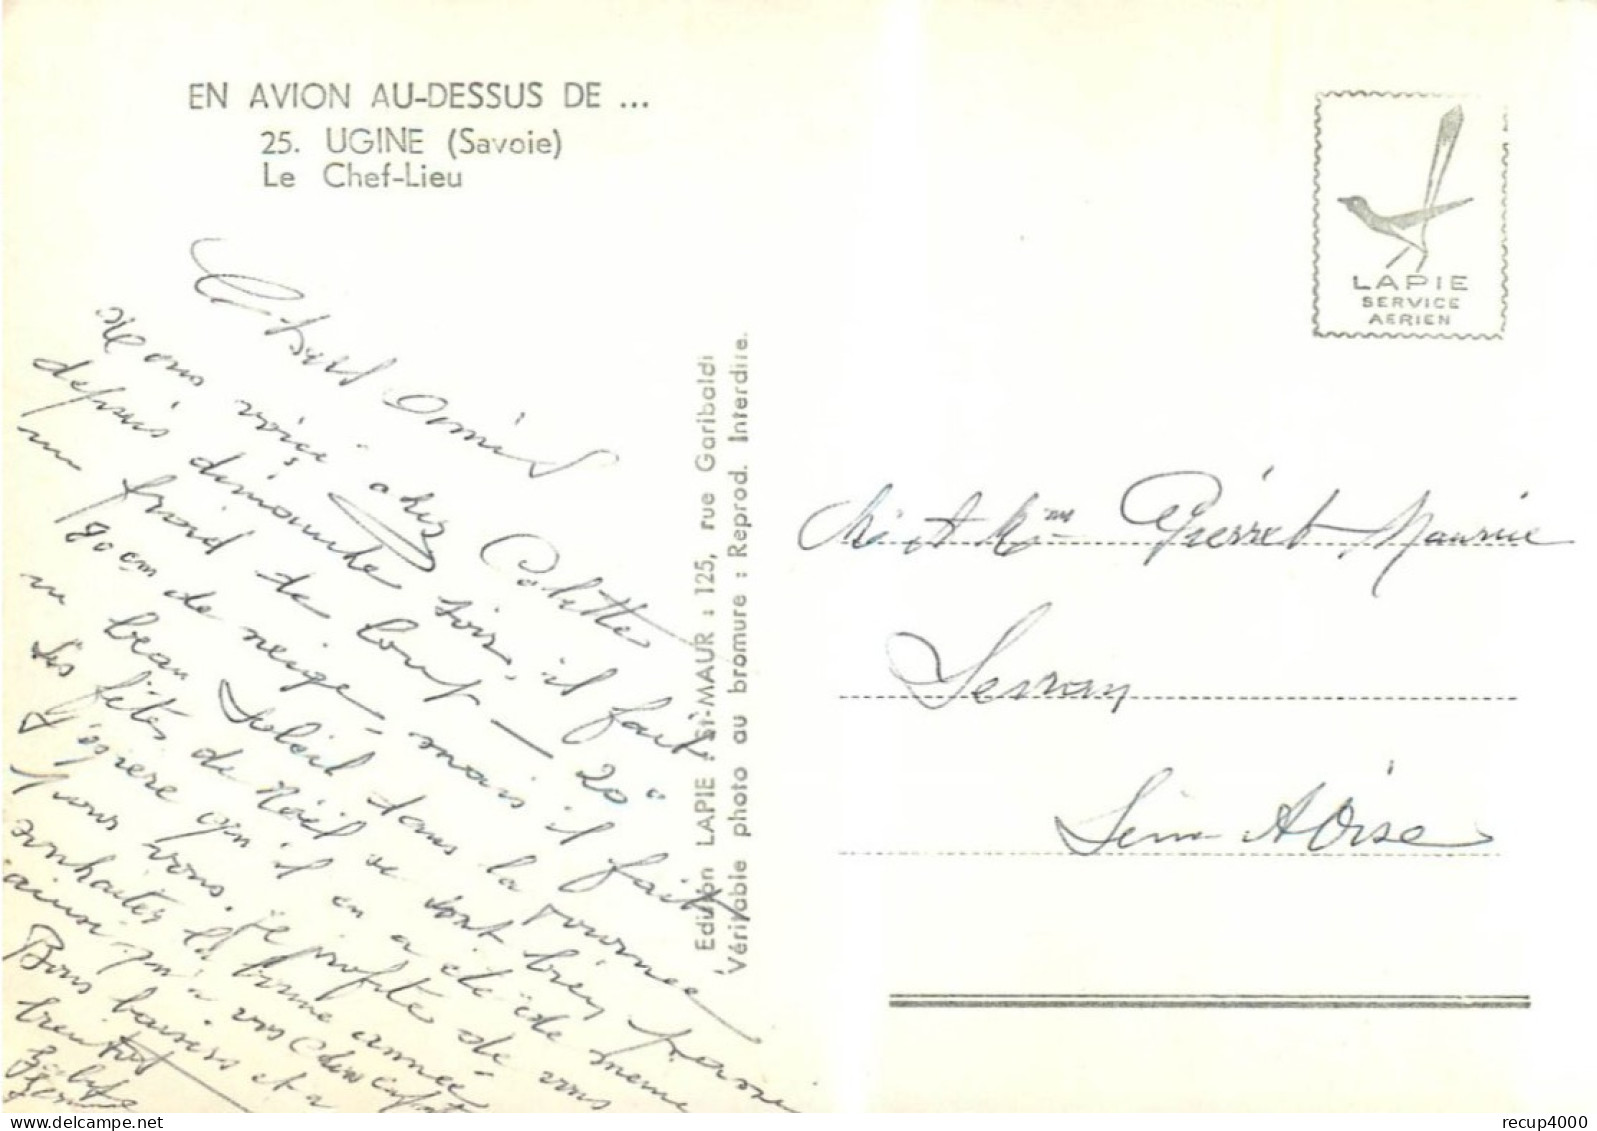 EN AVION AU-DESSUS DE ...
25. UGINE (Savoie)
Le Chef-Lieu
Chers Amis
Nous voiçi chez Colette
depuis dimanche soir, il fait
un froid de loup – 20°
80 cm de neige mais il fait
un beau Soleil dans la journée
Les fêtes de Noël se sont bien passé
J'espère qu'il en a été de même
pour vous. Je profite de vous
souhaiter la bonne année
ainsi qu'à vos chers enfants
Bons baisers et a
bientot
Edition LAPIE : St-MAUR : 125, rue Garibaldi
Véritable photo au bromure : Reprod. Interdite.
LAPIE
SERVICE
AERIEN
Mr et Mme Pierret Maurice
Sevran
Seine et Oise
recup4000